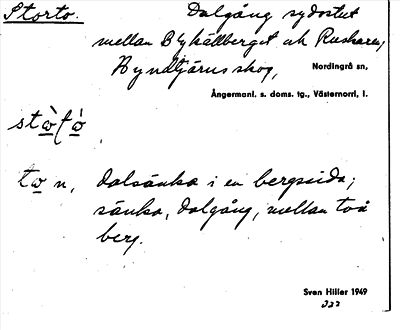 Storto.
Dalgång sydostut
mellan Blykällberget och Ruskaren,
Byndtjärns skog,
Nordingrå sn,
Ångermanl. s. doms. tg., Västernorrl, l.
to n, dalsänka i en bergssida;
sänka, dalgång, mellan två
berg.
Sven Hiller 1949